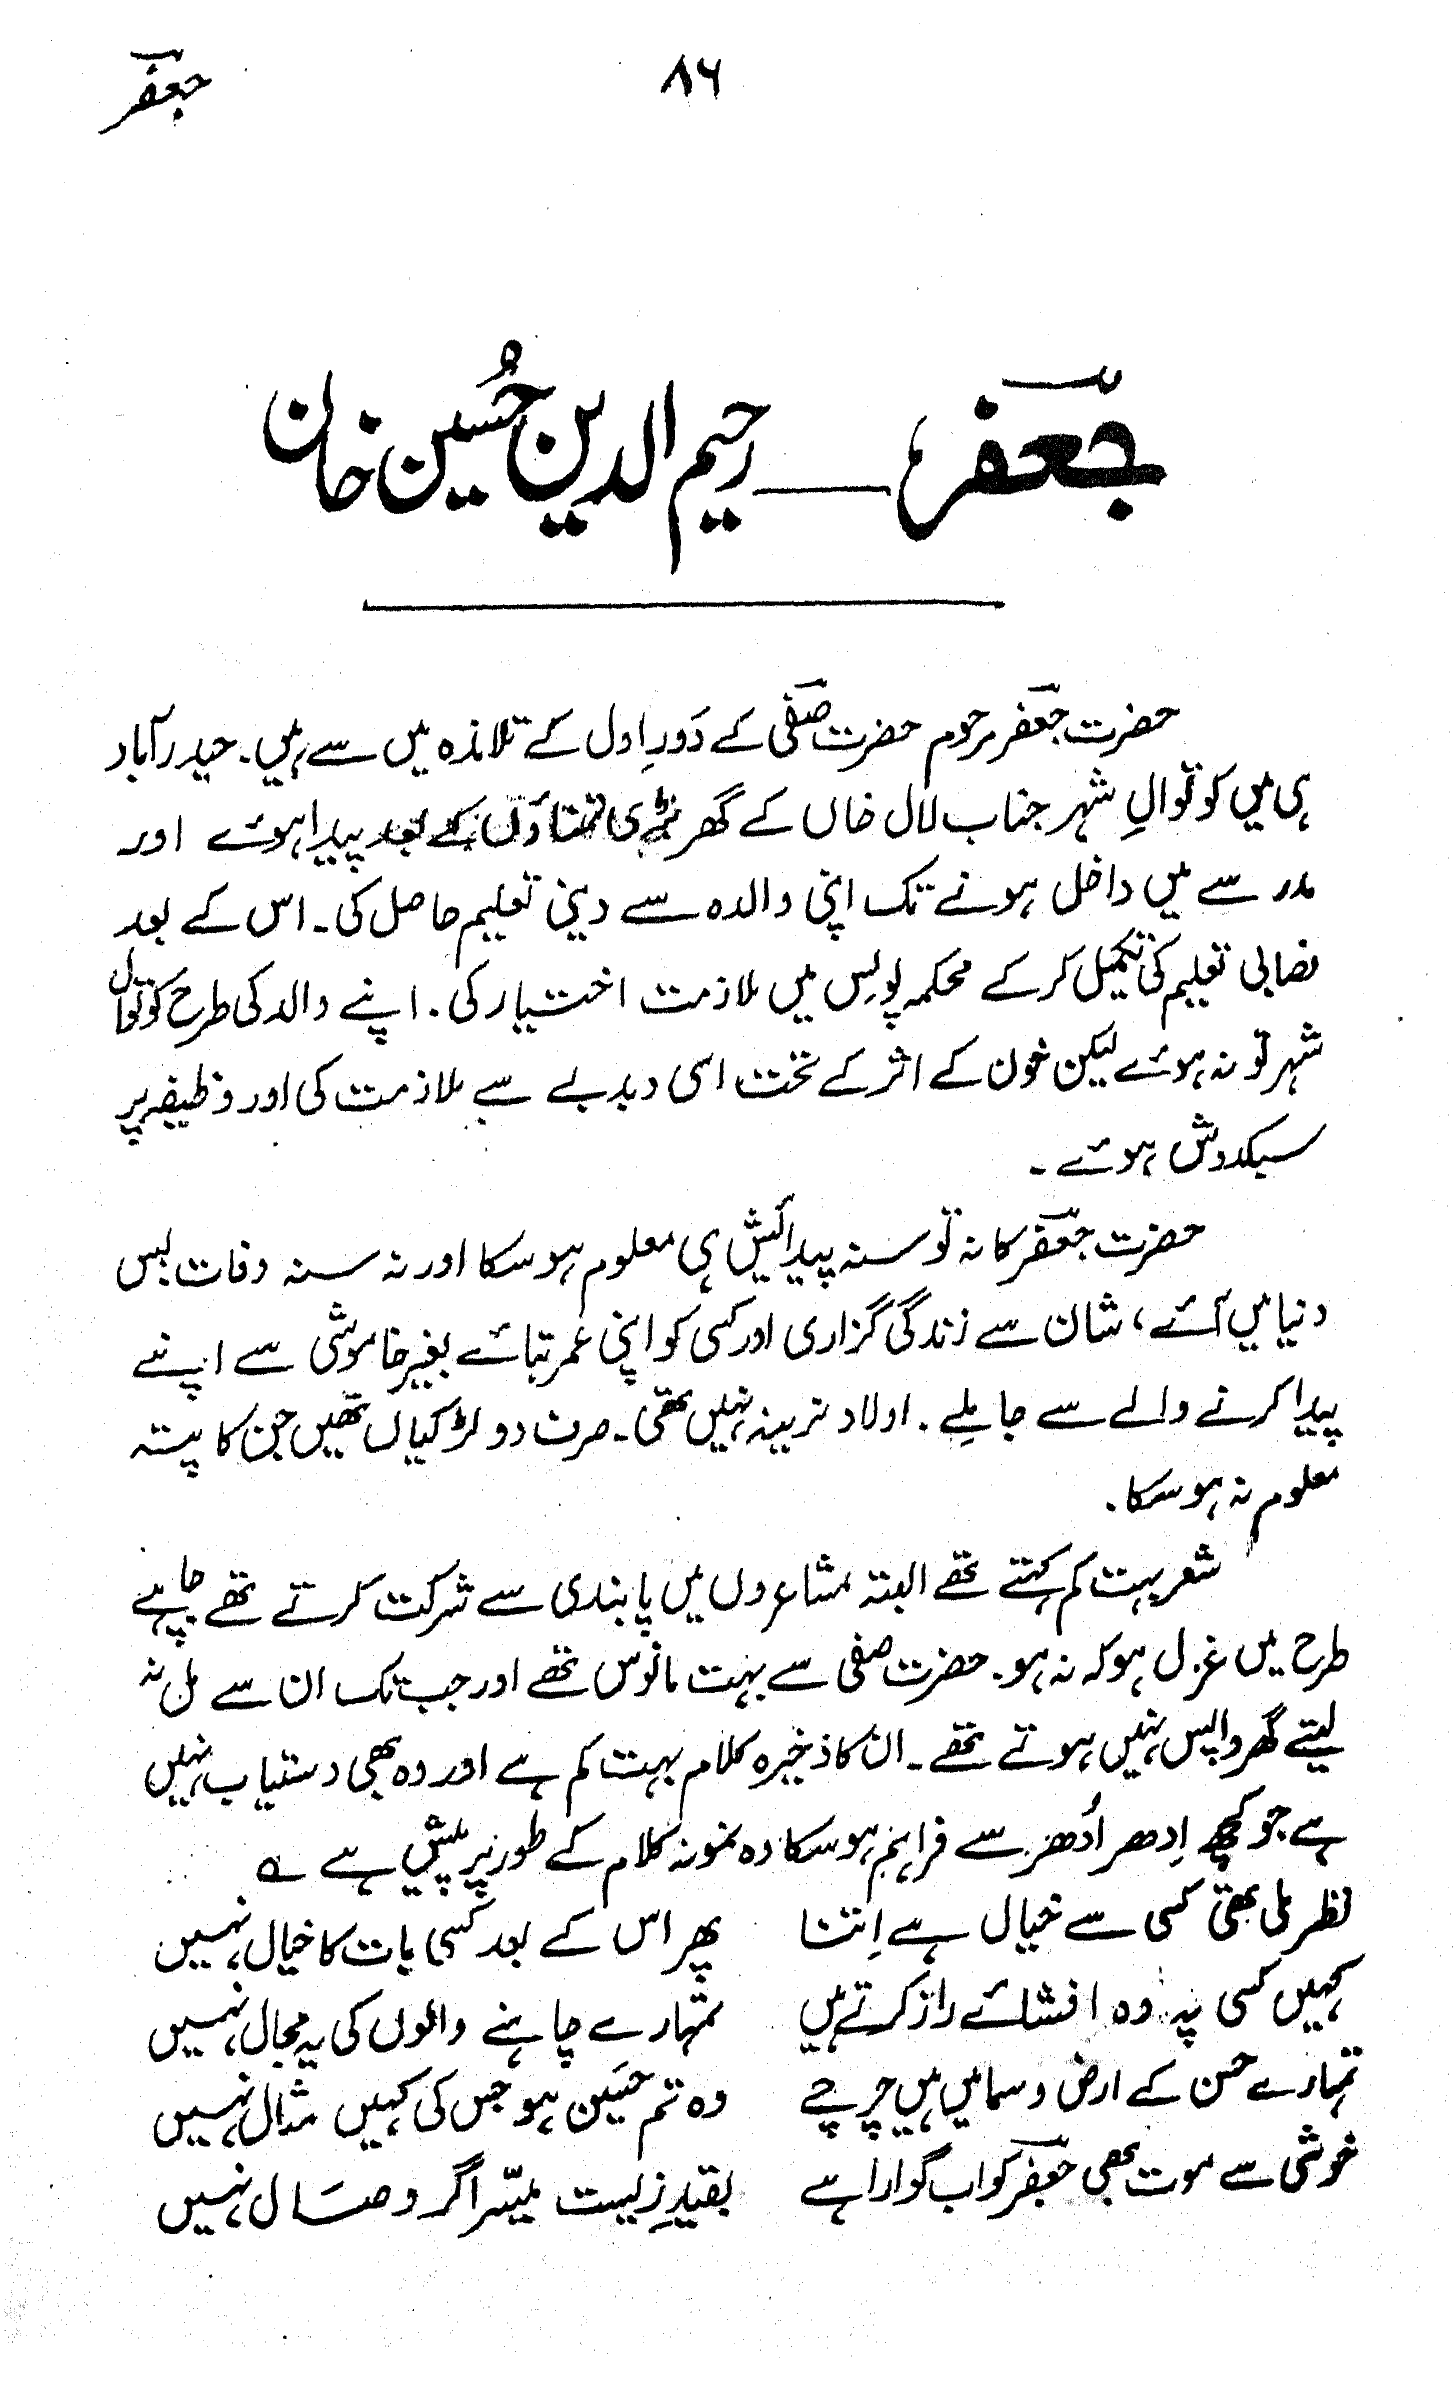 ۸۶
جعفر
جعفر — رحیم الدین حُسین خان
حضرت جعفر مرحوم حضرت صفی کے دَورِ اول کے تلامذہ میں سے ہیں۔ حیدرآباد
ہی میں کوتوالِ شہر جناب لال خاں کے گھر بڑی تمناؤں کے بعد پیدا ہوئے اور
مدرسے میں داخل ہونے تک اپنی والدہ سے دینی تعلیم حاصل کی۔ اس کے بعد
نصابی تعلیم کی تکمیل کرکے محکمہ پولیس میں ملازمت اختیار کی۔ اپنے والد کی طرح کوتوال
شہر تو نہ ہوئے لیکن خون کے اثر کے تحت اسی دبدبے سے ملازمت کی اور وظیفہ پر
سبکدوش ہوئے۔
حضرت جعفر کا نہ تو سنہ پیدائش ہی معلوم ہو سکا اور نہ سنہ وفات بس
دنیا میں آئے، شان سے زندگی گزاری اور کسی کو اپنی عمر بتائے بغیر خاموشی سے اپنے
پیدا کرنے والے سے جا ملے۔ اولاد نرینہ نہیں تھی۔ صرف دو لڑکیاں تھیں جن کا پتہ
معلوم نہ ہو سکا۔
شعر بہت کم کہتے تھے البتہ مشاعروں میں پابندی سے شرکت کرتے تھے چاہے
طرح میں غزل ہو کہ نہ ہو۔ حضرت صفی سے بہت مانوس تھے اور جب تک ان سے مل نہ
لیتے گھر واپس نہیں ہوتے تھے۔ ان کا ذخیرہ کلام بہت کم ہے اور وہ بھی دستیاب نہیں
ہے جو کچھ اِدھر اُدھر سے فراہم ہو سکا وہ نمونہ کلام کے طور پر پیش ہے ؎
نظر ملی تھی کسی سے خیال ہے اِتنا پھر اس کے بعد کسی بات کا خیال نہیں
کہیں کسی پہ وہ افشائے راز کرتے ہیں تمہارے چاہنے والوں کی یہ مجال نہیں
تمہارے حسن کے ارض و سما میں ہیں چرچے وہ تم حَسین ہو جس کی کہیں مثال نہیں
خوشی سے موت بھی جعفر کو اب گوارا ہے بقیدِ زیست میسّر اگر وصَال نہیں